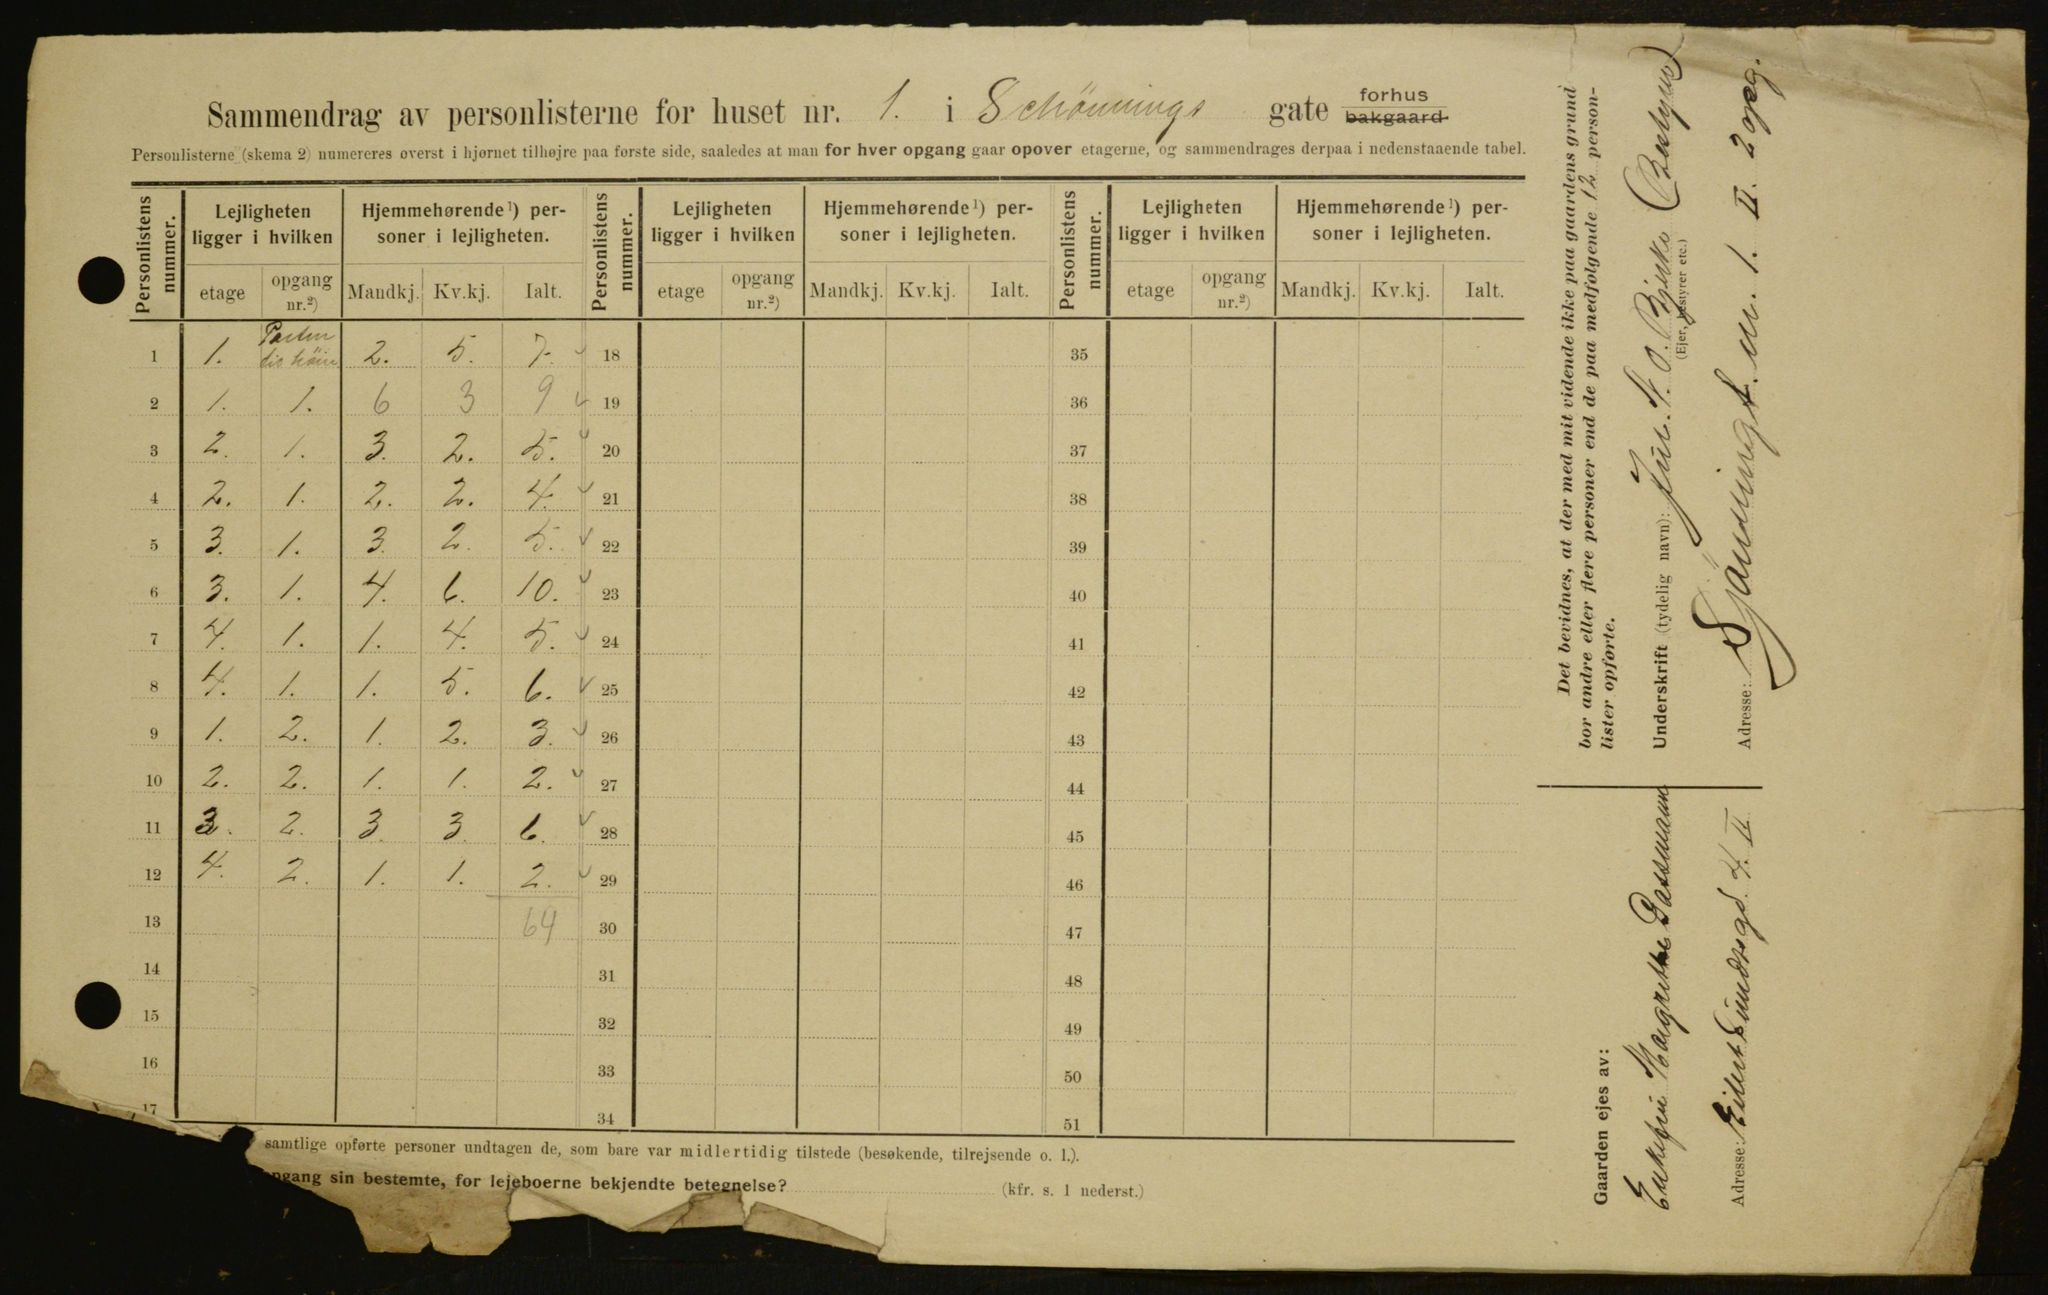 Sammendrag av personlisterne for huset nr. 1. i Schønnings gate forhus bakgaard
Personlisterne (skema 2) numereres øverst i hjørnet tilhøjre paa første side, saaledes at man for hver opgang gaar opover etagerne, og sammendrages derpaa i nedenstaaende tabel.
Personlistens nummer. Lejligheten ligger i hvilken Hjemmehørende¹) personer i lejligheten. Personlistens nummer. Lejligheten ligger i hvilken Hjemmehørende¹) personer i lejligheten. Personlistens nummer. Lejligheten ligger i hvilken Hjemmehørende¹) personer i lejligheten.
etage opgang nr.²) Mandkj. Kv.kj. Ialt. etage opgang nr.²) Mandkj. Kv.kj. Ialt. etage opgang nr.²) Mandkj. Kv.kj. Ialt.
1 1. 2. 5. 7. 18 35
2 1. 1. 6 3 9 19 36
3 2. 1. 3. 2. 5. 20 37
4 2. 1. 2. 2. 4. 21 38
5 3. 1. 3. 2. 5. 22 39
6 3. 1. 4. 6. 10. 23 40
7 4. 1. 1. 4. 5. 24 41
8 4. 1. 1. 5. 6. 25 42
9 1. 2. 1. 2. 3. 26 43
10 2. 2. 1. 1. 2. 27 44
11 3. 2. 3. 3. 6. 28 45
12 4. 2. 1. 1. 2. 29 46
13 64 30 47
14 31 48
15 32 49
16 33 50
17 34 51
samtlige opførte personer undtagen de, som bare var midlertidig tilstede (besøkende, tilrejsende o. l.).
opgang sin bestemte, for lejeboerne bekjendte betegnelse? (kfr. s. 1 nederst.)
Det bevidnes, at der med mit vidende ikke paa gaardens grund
bor andre eller flere personer end de paa medfølgende 12 person-
lister opførte.
Underskrift (tydelig navn):
(Ejer, bestyrer etc.)
Adresse: nr. 1. II. 2 opg.
Gaarden ejes av:
Enkefru Margrethe Gassmann
Adresse: Eilert Sundtsgd. 4. II